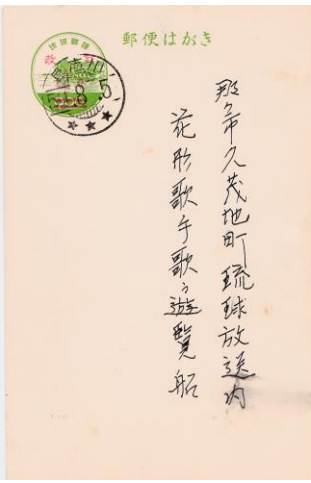 郵便はがき
琉球郵便
改訂
那覇市久茂地町琉球放送内
花形歌手歌う遊覧船